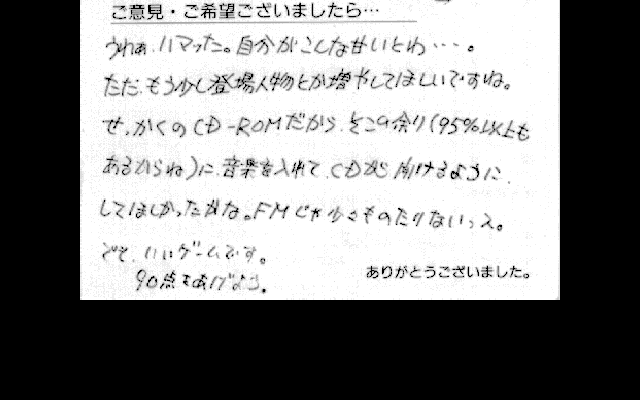 ご意見・ご希望ございましたら…
うわぁ、ハマった。自分がこんな甘いとわ…。
ただ、もう少し登場人物とか増やしてほしいですね。
せっかくのCD-ROMだから、そこの余り(95%以上も
あるからね)に、音楽を入れて、CDが聞けるように、
してほしかったかな。FMじゃ少々ものたりないっス。
でも、いいゲームです。
90点をあげよう。
ありがとうございました。